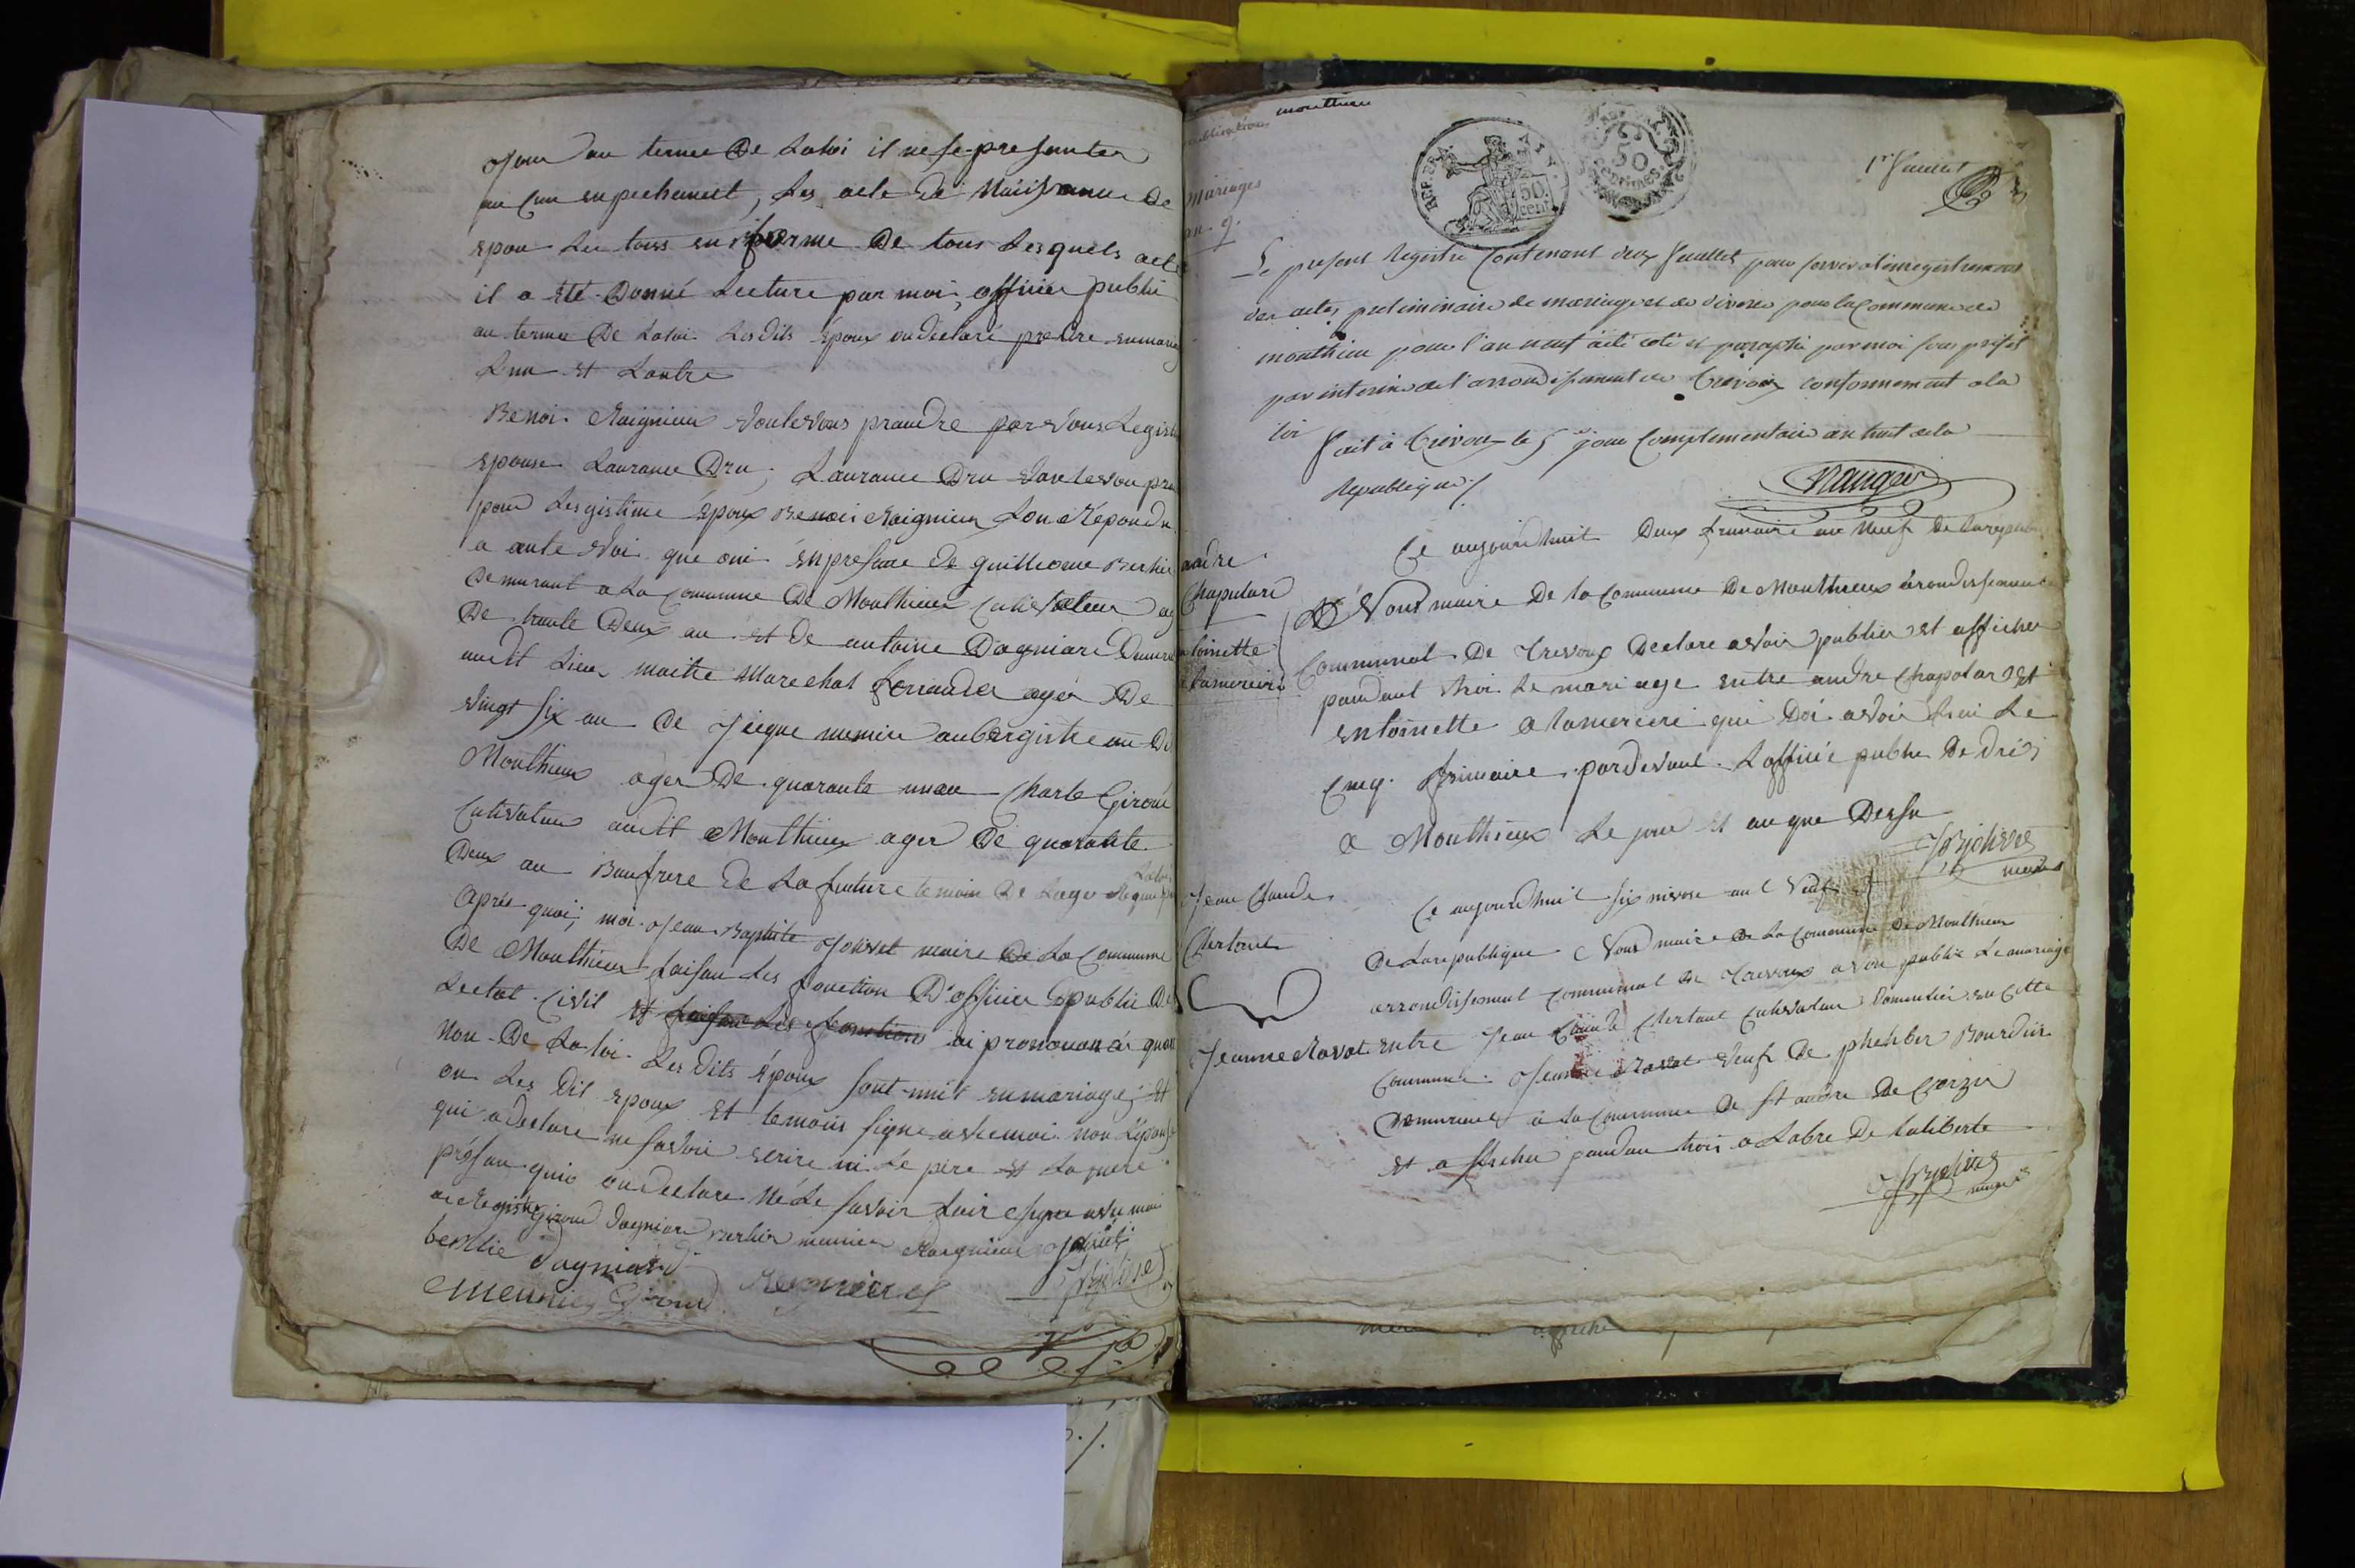 jour au terme De Laloi il ne se presanter
au Cun enpechement, Les acte de Naissanuu De
epou Les tous en forme De tous Lesquels acte
il a été Donné Lecture par moi, officier public
au terme De Laloi Lesdits époux on declaré predre en mariag
Lun et Lautre
Benoi Raignieux voulevous prandre par vous Legist
epouse Lauranee Dru, Lauranee Dru voulevou pran
pour Lesgistime époux Benoit Raignieux Lon Répondu
a aute voi que oui enpresance de guilleaume Berlier
Demurant a La commune De Monthieux Cultivateur ag
De trante Deux an et De antoine Dagniard Demeurant
audit Lieux maitre Marechal ferrander ager De
vingt six an De Jacque munier aubergiste au Dit
Monthieux ager De quarante un an Charle Giroud
Cultivateur audit Monthieux ager De quarante
Deux an Beaufrere De La future temoin De Lage Requi par
Laloi
Après quoi, moi Jean Baptiste Jolivet maire De La Commune
De Monthieux faisan Les fonction D'officier public De
Lectat Civil et faisan Les fonctions ai prononcé qu'au
Non De La loi Les Dits époux sont unit en mariage, Et
on Les Dit epoux Et temoins signe avec moi non L'epouse
qui a Declare ne savoir ecrire ni Le père et La mere
présan qui on Declare Né Le savoir fair signe avec moi
au Registre Giroud Dagniard Berlier munier Raignieux Jolivet
berlie Dagniard
Meunier Giroud Regnieux Jolivet
publication monthieu
1er feuillet
Mariages
an 9.
REP. FRA. 50 cent.
50 centimes
Le present Registre Contenant deux feuillets pour servir a l'enregistrement
des actes preliminaire de mariage et de divorce pour la Commune de
monthieu pour l'an neuf a été coté et paraphé par moi sous prefet
par interim de l'arrondissement de Trevoux conformement a la
loi
fait a Trevoux le 5e jour Complementaire an huit de la
Republique
Ce aujourdhuit Deux frimaire an Neuf De La republi
andre
Chapulard
Nous maire De la Commune De Monthieux arondissement
antoinette
Lamercerie
Communal De Trevoux Declare avoir publier Et afficher
pandant trois Le mariage entre andre Chapolard Et
entoinette a Lamercerie qui Doi avoir Lieu Le
Cinq frimaire pardevant Lofficié public De Dit
a Monthieux Le jour et an que Dessu
JB Jolivet
maire
Jean Claude
Ce aujourdhuit six nivose an Neuf
Clertant
De La republique Nous maire De La Commune De Monthieux
arrondissement communal De Trevoux avon publié Le mariage
Jeanne Ravat entre Jean Claude Clertant Cultivateur Domicilié en Cette
Commune Jeanne Ravat veuf De phelber Bourdin
Demurant a La Commune De St andre De Corzy
Et afficher pandan trois a Labre De La liberte
JB Jolivet
maire
affiché